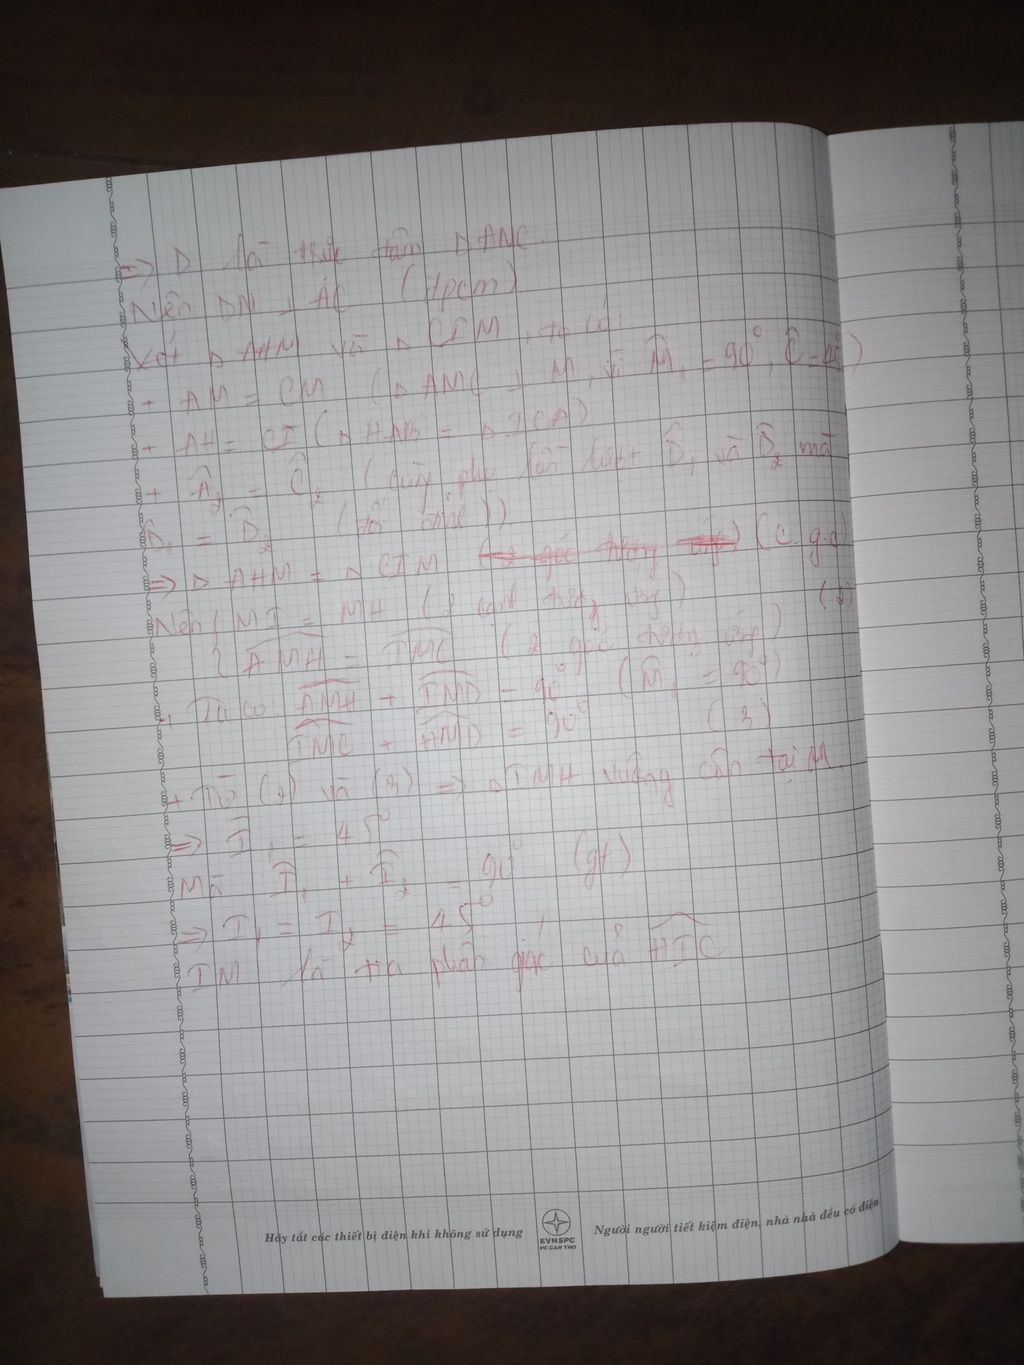 => D là trực tâm △ ANC.
Nên DN ⊥ AC (đpcm)
Xét △ AHM và △ CIM, ta có:
+ AM = CM (△ AMC ⊥ M, vì M̂₁ = 90°, Ĉ = 45)
+ AH = CI (△ HAB = △ ICA)
+ Â₂ = Ĉ₂ (cùng phụ lần lượt D̂₁ và D̂₂ mà
D̂₁ = D̂₂ (đối đỉnh))
=> △ AHM = △ CIM (c.g.c)
Nên { MI = MH (2 cạnh tương ứng) (2)
{ AMH = IMC (2 góc tương ứng)
+ Ta có: AMH + IMD = 90° (M̂₁ = 90°)
IMC + HMD = 90° (3)
+ Từ (2) và (3) => △ IMH vuông cân tại M.
=> Î₁ = 45°
Mà Î₁ + Î₂ = 90° (gt)
=> I₁ = I₂ = 45°
IM là tia phân giác của HIC
Hãy tắt các thiết bị điện khi không sử dụng
EVNSPC
PC CAN THO
Người người tiết kiệm điện, nhà nhà đều có điện